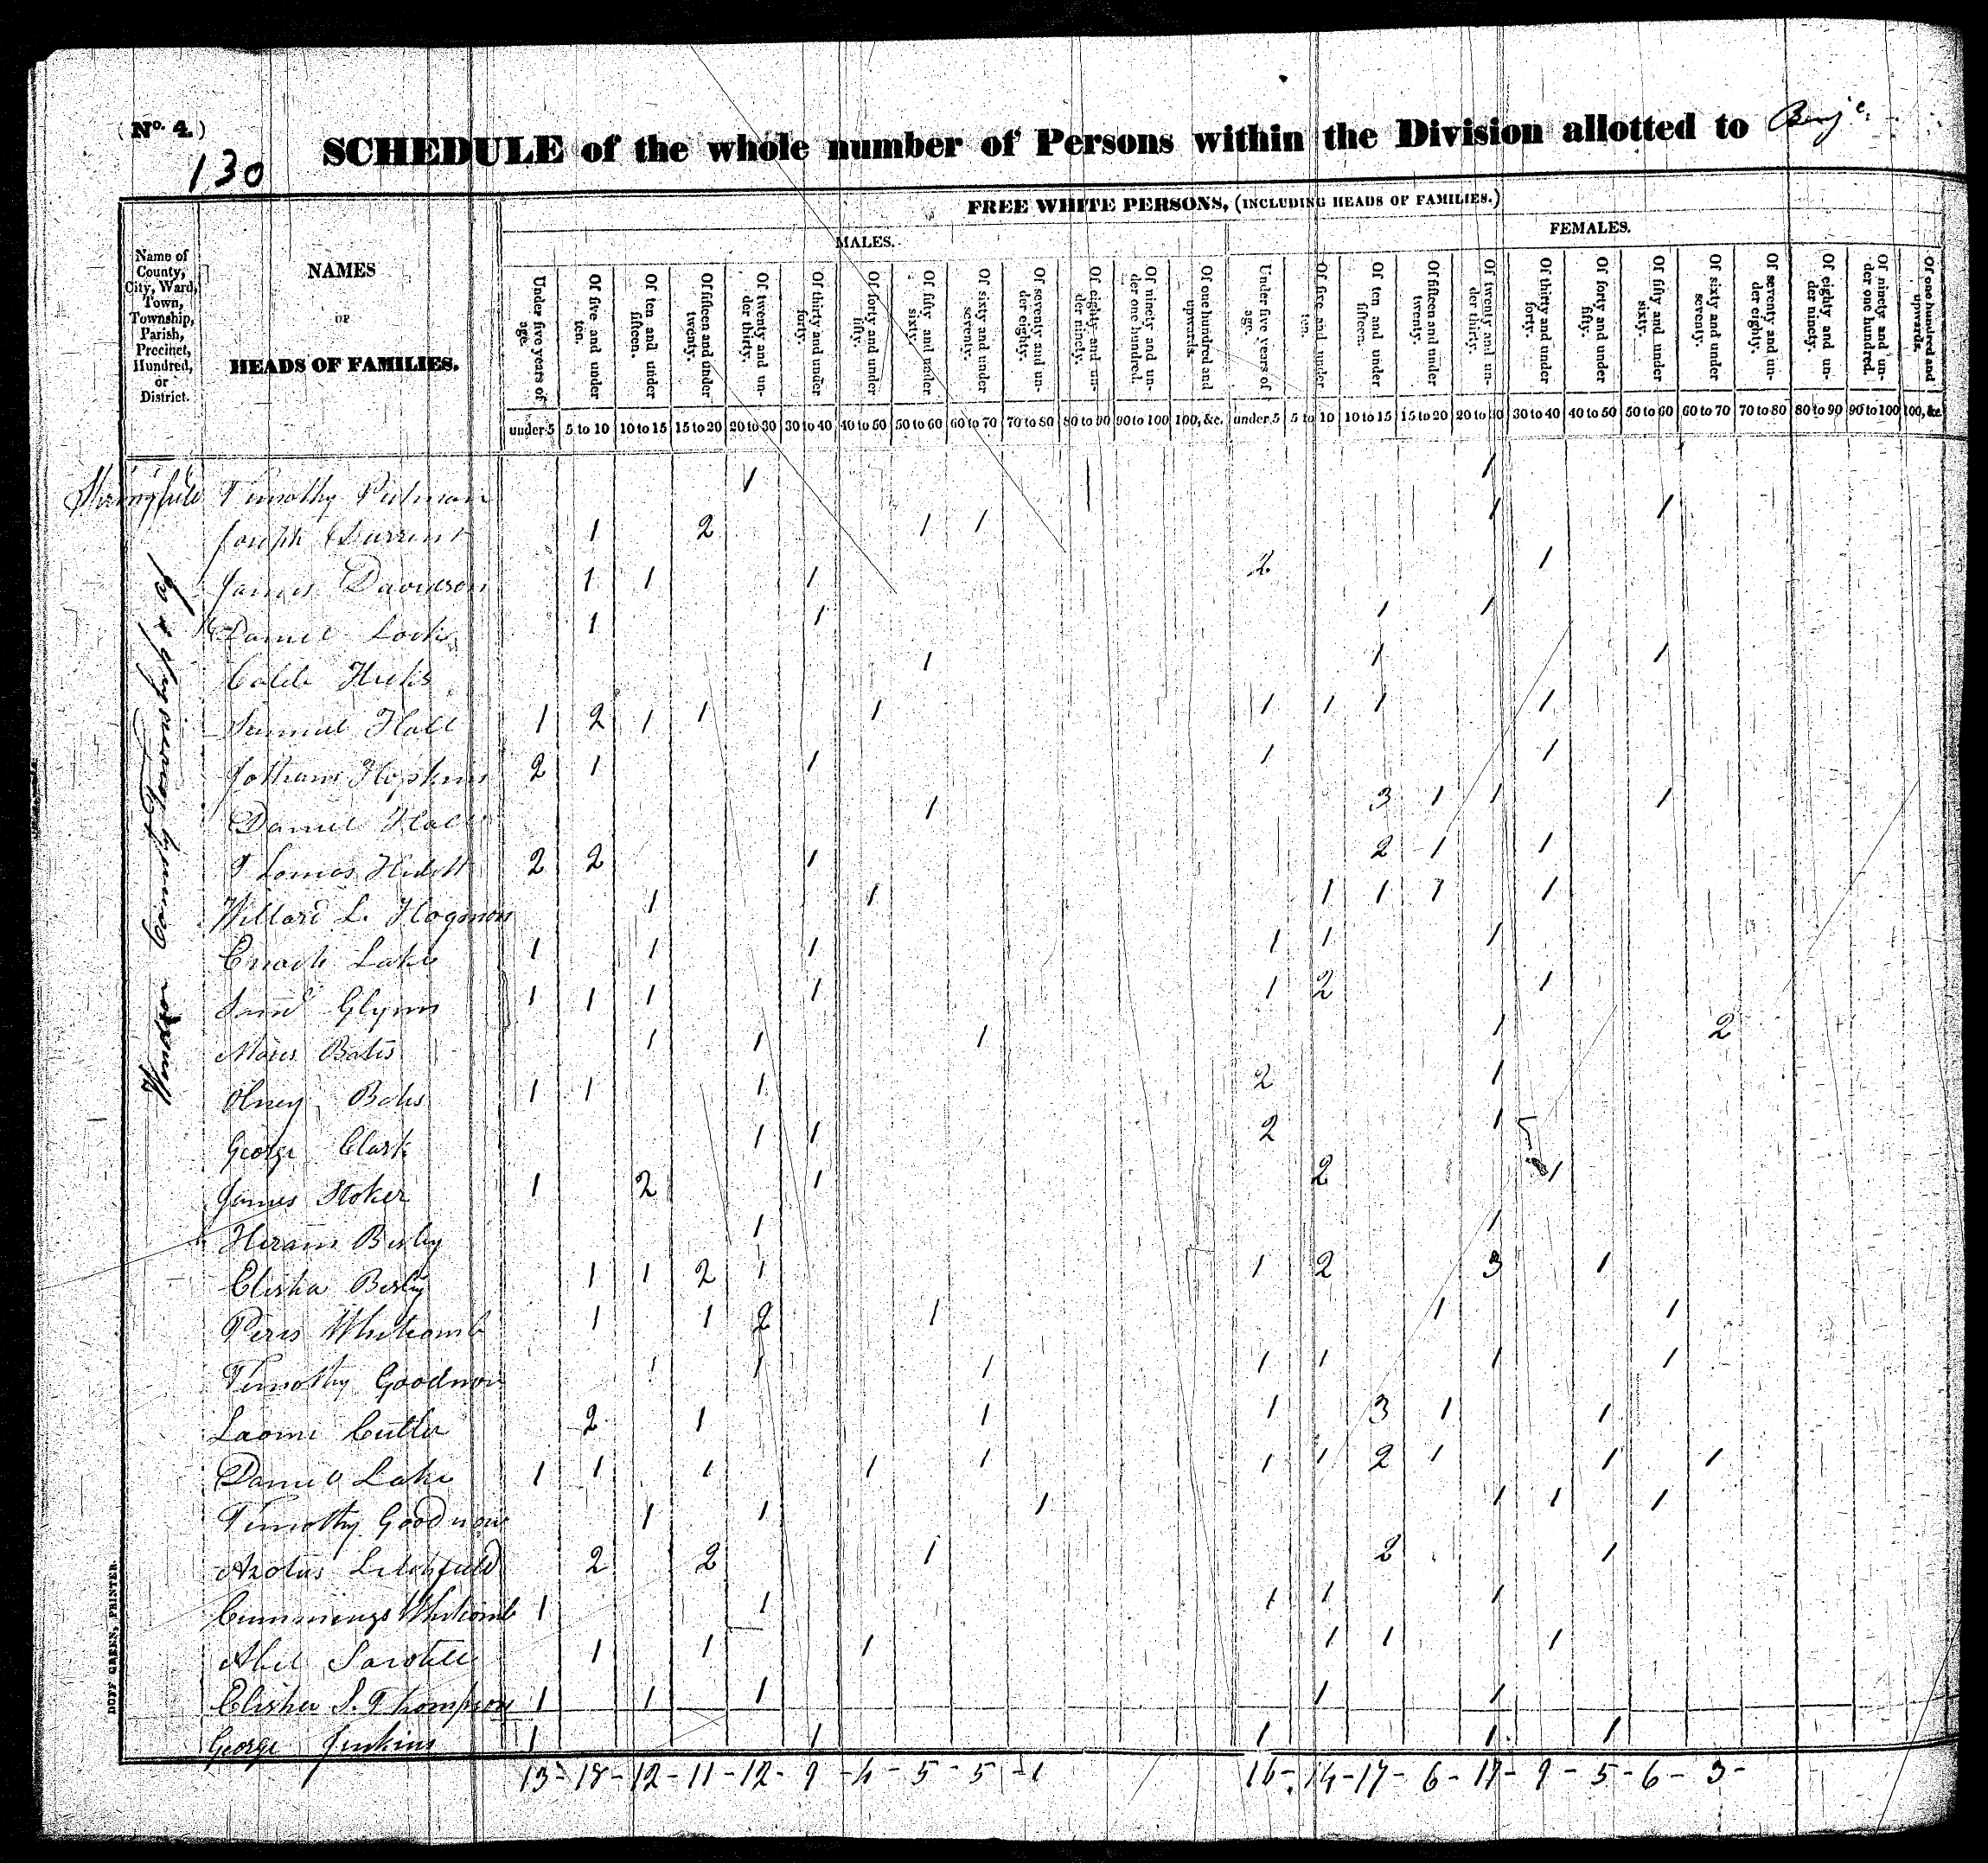 (No. 4.)
130
SCHEDULE of the whole number of Persons within the Division allotted to Benj
FREE WHITE PERSONS, (INCLUDING HEADS OF FAMILIES.)
MALES. FEMALES.
Name of County, City, Ward, Town, Township, Parish, Precinct, Hundred, or District.
NAMES
OF
HEADS OF FAMILIES.
Under five years of age. Of five and under ten. Of ten and under fifteen. Of fifteen and under twenty. Of twenty and under thirty. Of thirty and under forty. Of forty and under fifty. Of fifty and under sixty. Of sixty and under seventy. Of seventy and under eighty. Of eighty and under ninety. Of ninety and under one hundred. Of one hundred and upwards. Under five years of age. Of five and under ten. Of ten and under fifteen. Of fifteen and under twenty. Of twenty and under thirty. Of thirty and under forty. Of forty and under fifty. Of fifty and under sixty. Of sixty and under seventy. Of seventy and under eighty. Of eighty and under ninety. Of ninety and under one hundred. Of one hundred and upwards.
under 5 5 to 10 10 to 15 15 to 20 20 to 30 30 to 40 40 to 50 50 to 60 60 to 70 70 to 80 80 to 90 90 to 100 100, &c. under 5 5 to 10 10 to 15 15 to 20 20 to 30 30 to 40 40 to 50 50 to 60 60 to 70 70 to 80 80 to 90 90 to 100 100, &c.
Springfield Timothy Putman 1 1
Joseph 1 2 1 1 1 1
James Davidson 1 1 1 2 1
Daniel Locke 1 1 1 1
Caleb Hicks 1 1 1
Samuel Hall 1 2 1 1 1 1 1 1 1
Jotham Hopkins 2 1 1 1 1
Daniel Hall 1 3 1 1 1
Thomas 2 2 1 2 1 1
Willard L. 1 1 1 1 1 1
Enoch Lake 1 1 1 1 1 1
Saml Glynn 1 1 1 1 1 2 1
Moses Bates 1 1 1 1 2
Olney Bates 1 1 1 2 1
George Clark 1 1 2 1
James Stoker 1 2 1 2 1
Hiram Bisby 1 1
Elisha Bisby 1 1 2 1 1 2 3 1
Peres Whitcomb 1 1 2 1 1 1
Timothy Goodnow 1 1 1 1 1 1 1
Laomi Cutler 2 1 1 1 3 1 1
Daniel Lake 1 1 1 1 1 1 1 2 1 1 1
Timothy Goodnow 1 1 1 1 1 1
Azotus Litchfield 2 2 1 2 1
Cummings Whitcomb 1 1 1 1 1
Abel Sartell 1 1 1 1 1 1
Elisha S. Thompson 1 1 1 1 1
George Jenkins 1 1 1 1 1
13 - 18 - 12 - 11 - 12 - 9 - 4 - 5 - 5 - 1 16 - 14 - 17 - 6 - 17 - 9 - 5 - 6 - 3 -
Windsor County
DUFF GREEN, PRINTER